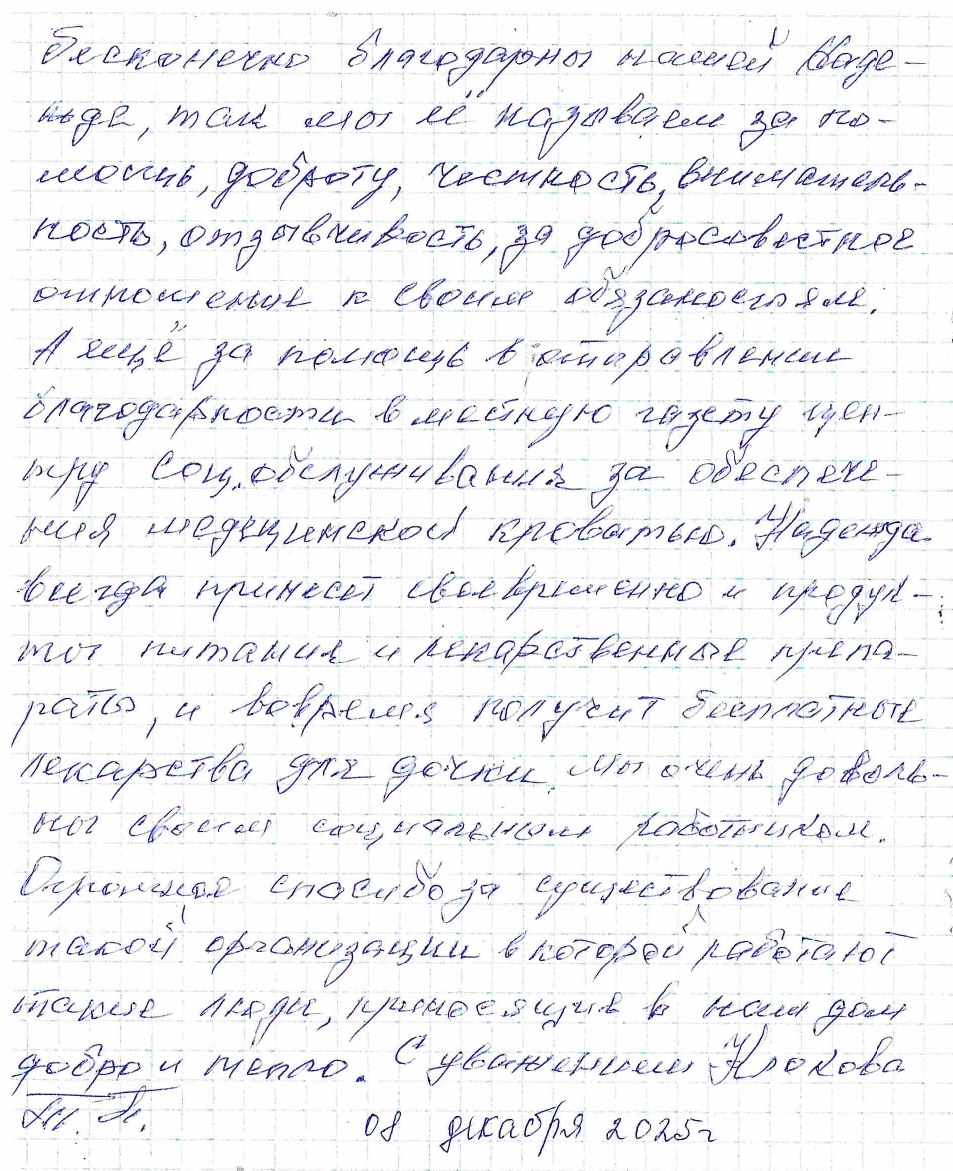 бесконечно благодарны нашей Наде-
ньде, так мы её называем за по-
мощь, доброту, честность, вниматель-
ность, отзывчивость, за добросовестное
отношение к своим обязаностям.
А ещё за помощь в отправлении
благодарности в местную газету цен-
тру соц. обслуживания за обеспече-
ния медицинской кроватью. Надежда
всегда принесёт своевременно и продук-
ты питания и лекарственные препа-
раты, и вовремя получит бесплатные
лекарства для дочки. Мы очень доволь-
ны своим социальным работником.
Огромное спасибо за существование
такой организации в которой работают
такие люди, приносящие в наш дом
добро и тепло. С уважением
08 декабря 2025г